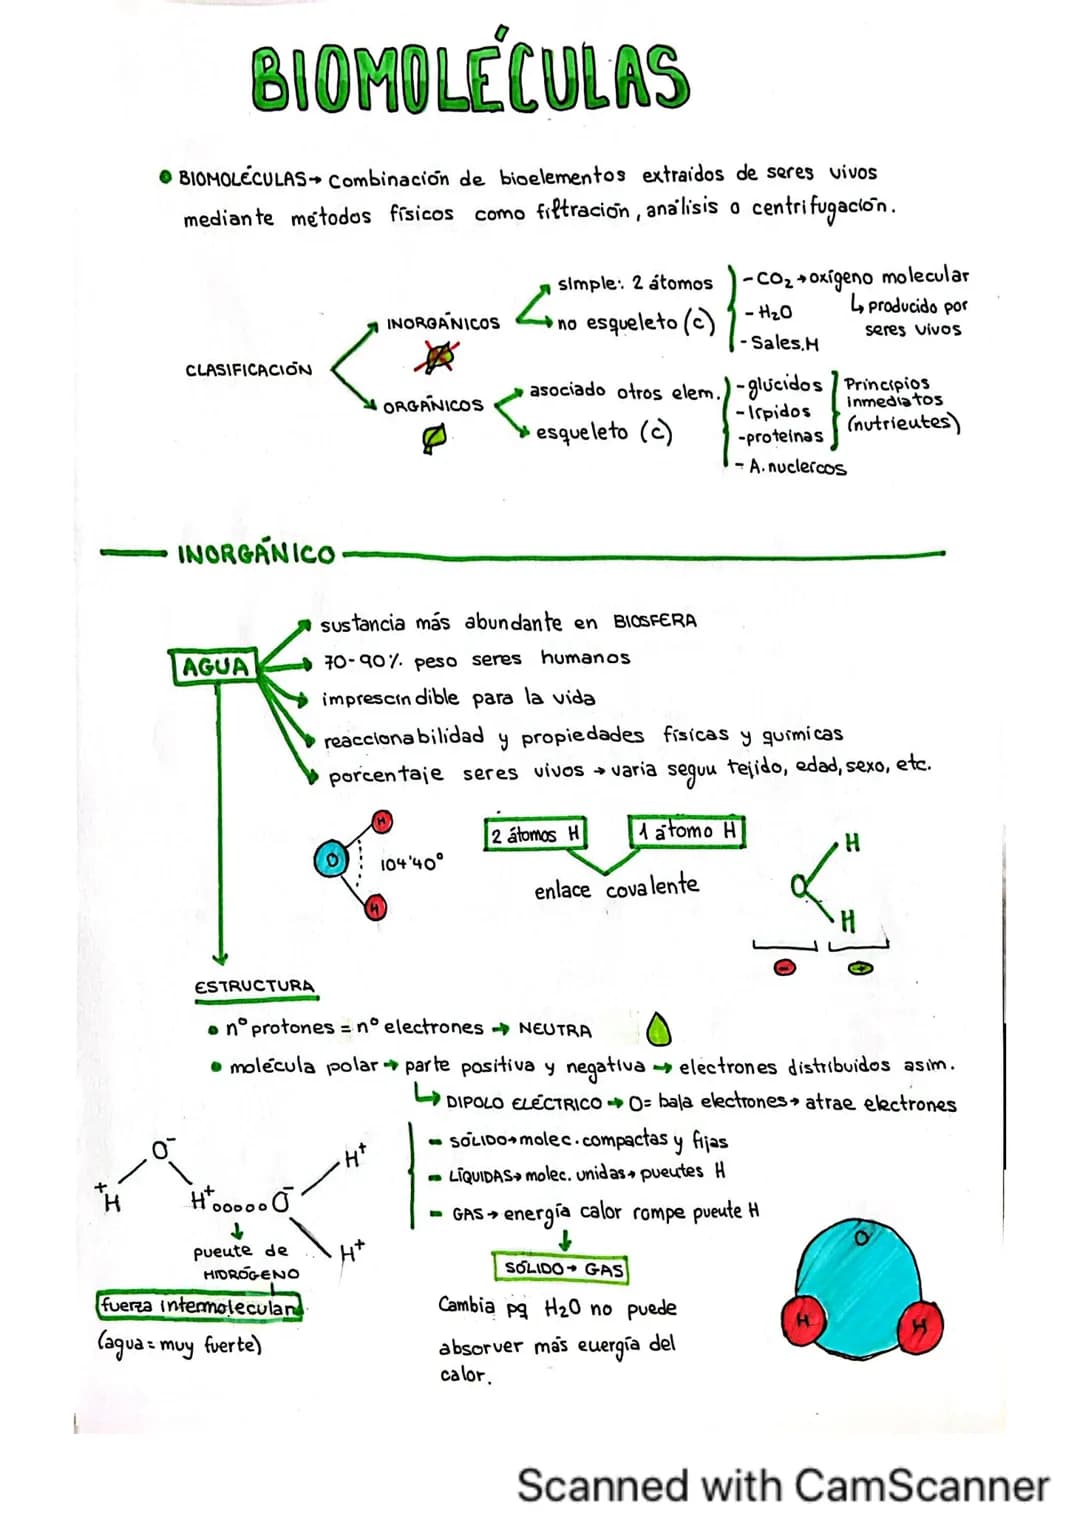 BIOMOLÉCULAS
• BIOMOLÉCULAS → Combinación de bioelementos extraídos de seres vivos
mediante métodos físicos como filtración, análisis o centrifugación.
CLASIFICACIÓN
INORGÁNICOS
simple: 2 átomos
no esqueleto (c)
- CO₂ → oxígeno molecular
↳ producido por
seres vivos
- H₂O
- Sales.M
ORGÁNICOS
asociado otros elem.
esqueleto (c)
- glúcidos
- lípidos
- proteínas
- A. nucleicos
Principios
inmediatos
(nutrieutes)
INORGÁNICO
AGUA
sustancia más abundante en BIOSFERA
70-90% peso seres humanos
imprescindible para la vida
reaccionabilidad y propiedades físicas y químicas
porcentaje seres vivos → varia seguu tejido, edad, sexo, etc.
H
O
H
104'40°
2 átomos H
1 átomo H
enlace covalente
O
H
H
-
+
ESTRUCTURA
• nº protones = nº electrones → NEUTRA
• molécula polar → parte positiva y negativa → electrones distribuidos asim.
↳ DIPOLO ELÉCTRICO → O= baja electrones → atrae electrones
- SÓLIDO → molec. compactas y fijas
- LÍQUIDAS → molec. unidas → pueutes H
- GAS → energía calor rompe pueute H
SÓLIDO → GAS
Cambia pq H2O no puede
absorver más euergía del
calor.
O⁻
⁺H
H⁺ooooo O⁻
H⁺
H⁺
pueute de
HIDRÓGENO
fuerza intermolecular
(agua = muy fuerte)
O
H
H
Scanned with CamScanner